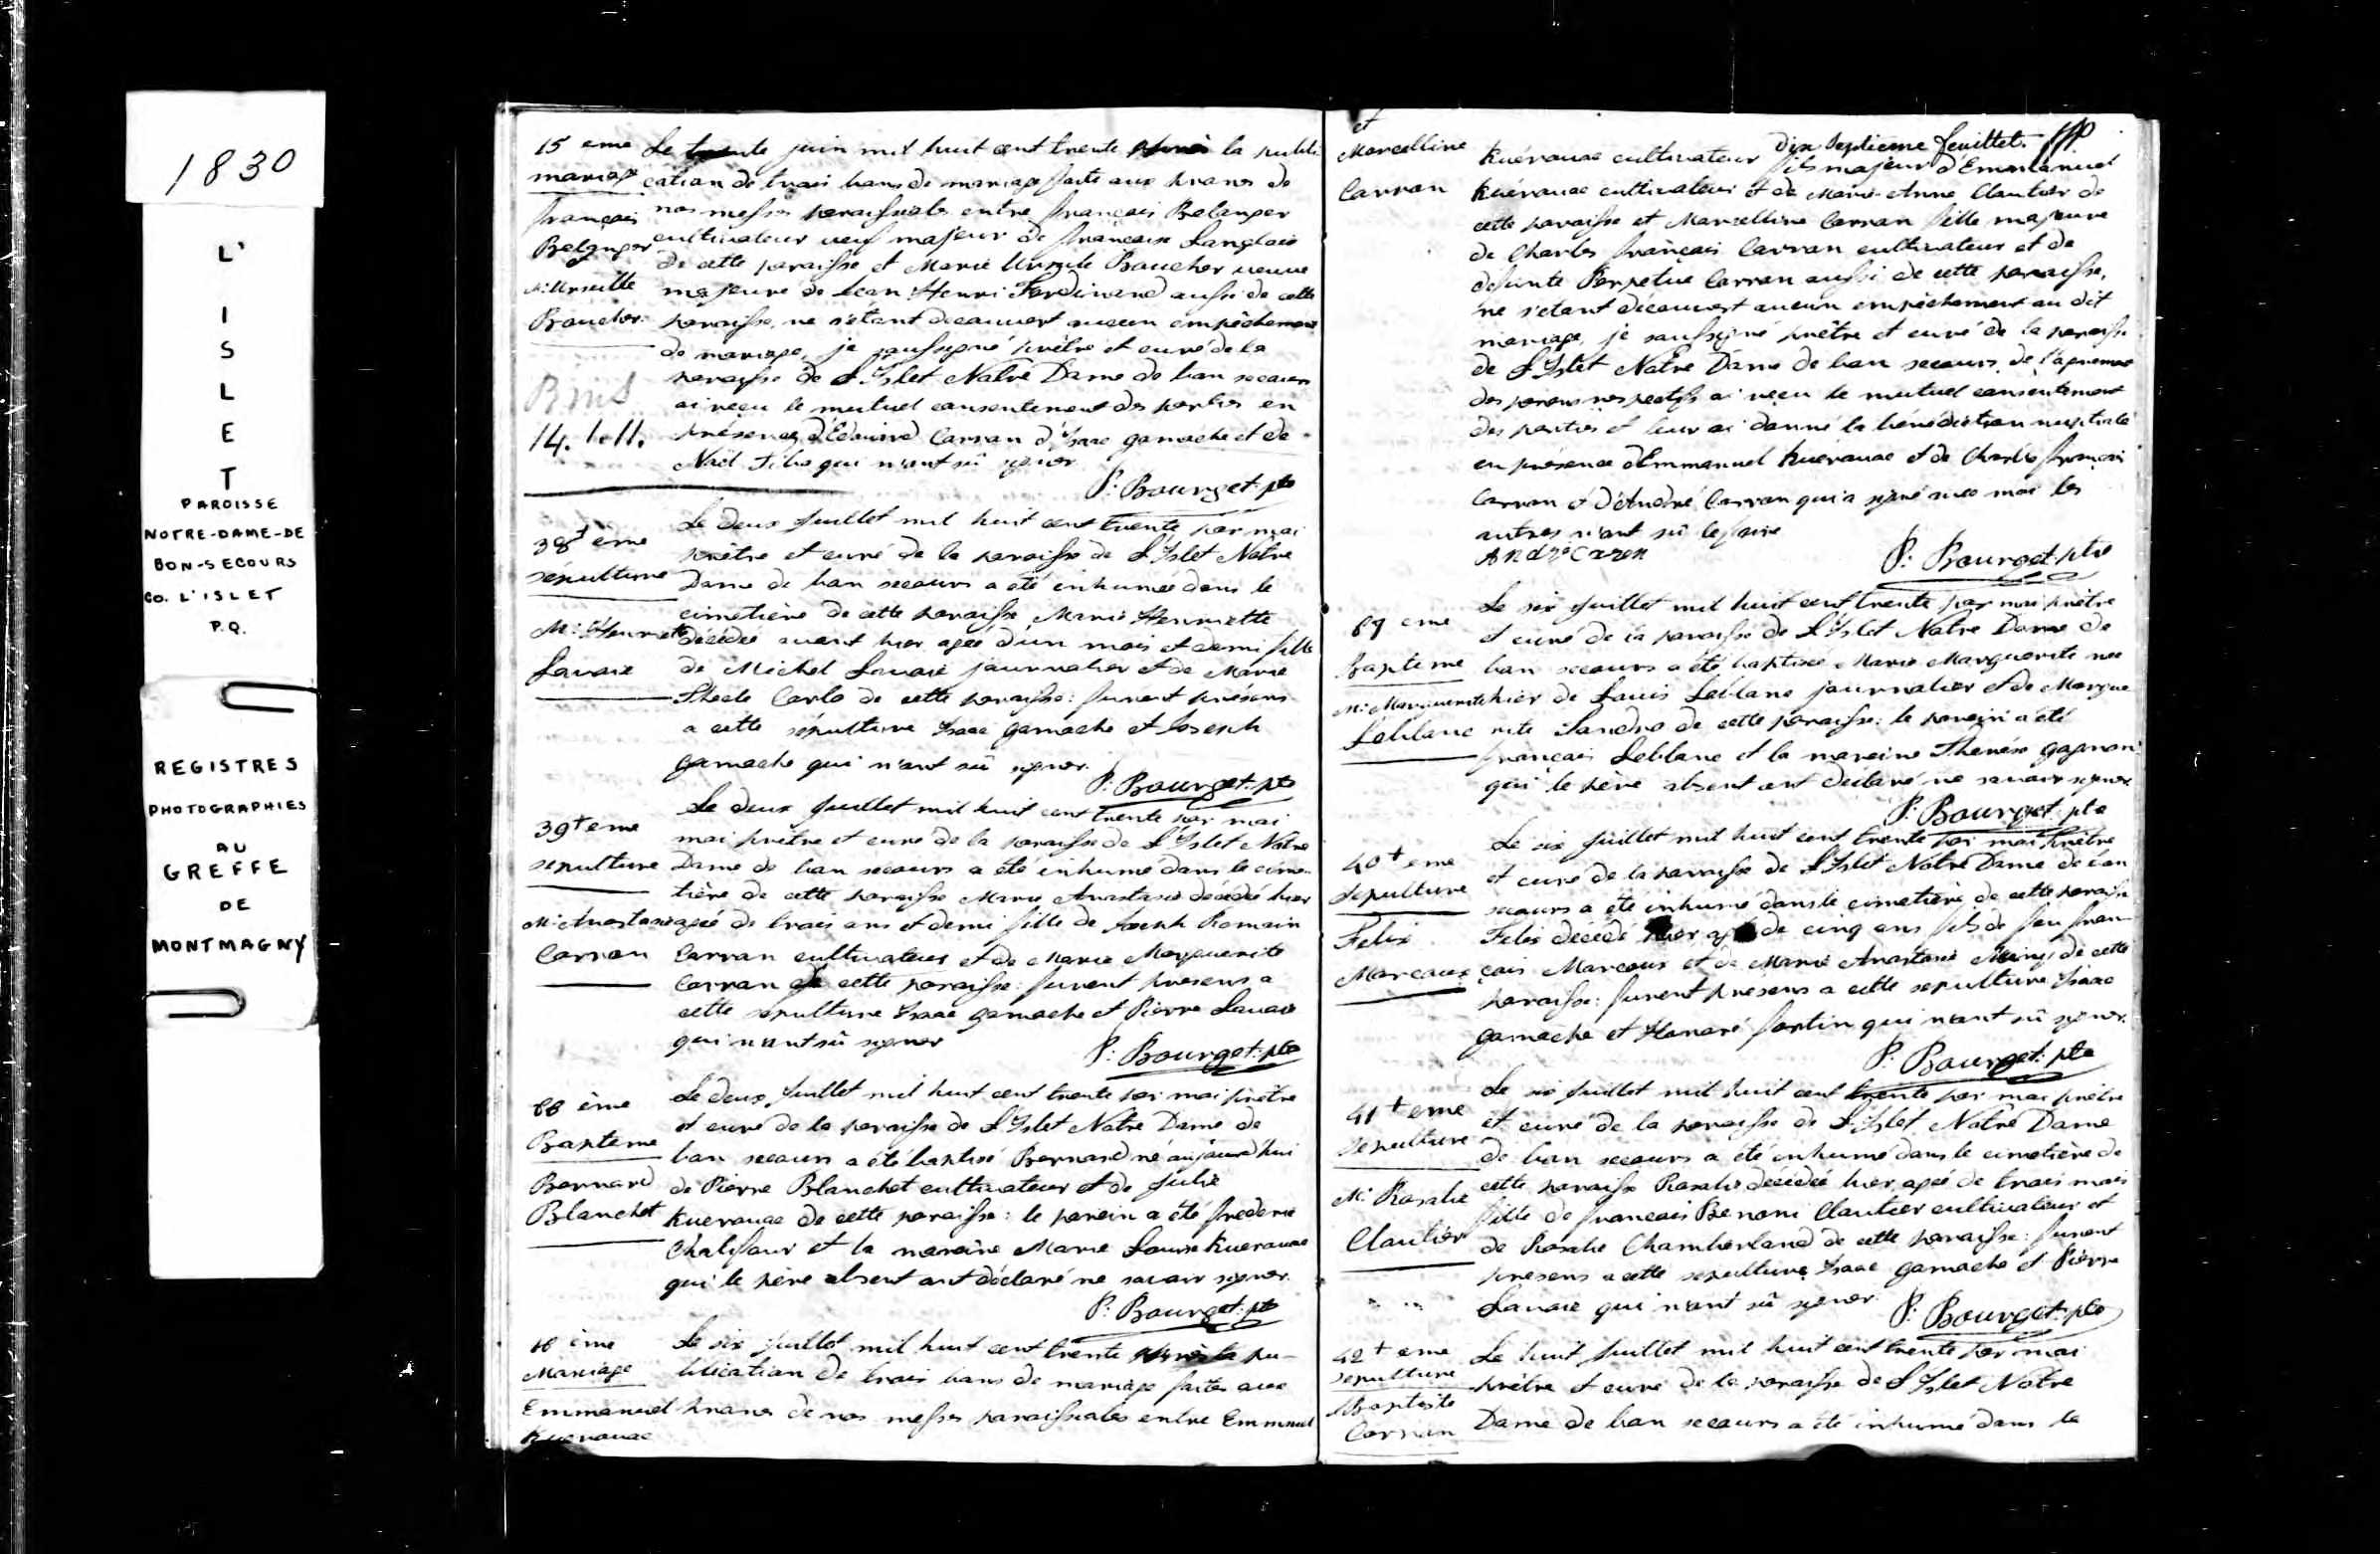 1830
L'
I
S
L
E
T
PAROISSE
NOTRE-DAME-DE
BON-SECOURS
CO. L'ISLET
P.Q.
REGISTRES
PHOTOGRAPHIES
AU
GREFFE
DE
MONTMAGNY
15 eme
mariage
françois
Belanger
M: Urseille
Boucher
14.
Le trente juin mil huit cent trente après la publi
cation de trois bans de mariage faite aux prones de
nos messes paroissiales entre françois Belanger
cultivateur veuf majeur de françoise Langlois
de cette paroisse et Marie Ursule Boucher veuve
majeure de Jean Henri Ferdinand aussi de cette
paroisse, ne s'étant decouvert aucun empêchement
de mariage, je soussigné prêtre et curé de la
paroisse de L'Islet Notre Dame de bon secours
ai reçu le mutuel consentement des parties en
présence d'Edouard Carron d'Isaac gamache et de
Noël qui n'ont sû signer
P: Bourget ptre
38t eme
sépulture
M: Henriette
Lavoie
Le deux Juillet mil huit cent trente par moi
prêtre et curé de la paroisse de L'Islet Notre
Dame de bon secours a été inhumée dans le
cimetière de cette paroisse Marie Henriette
décédée avant hier agée d'un mois et demi fille
de Michel Lavoie journalier et de Marie
Thecle Carlo de cette paroisse: furent présens
a cette sépulture Isaac gamache et Joseph
gamache qui n'ont sû signer.
P: Bourget: ptre
39t eme
sepulture
M: Anastasie
Carron
Le deux Juillet mil huit cent trente par moi
moi prêtre et curé de la paroisse de L'Islet Notre
Dame de bon secours a été inhumé dans le cime-
tière de cette paroisse Marie Anastasie décédé hier
agée de trois ans et demi fille de Joseph Romain
Carron cultivateur et de Marie Marguerite
Carron de cette paroisse: furent presens a
cette sepulture Isaac gamache et Pierre Lavoie
qui n'ont sû signer
P: Bourget: ptre
88 ème
Bapteme
Bernard
Blanchet
Le deux Juillet mil huit cent trente par moi prêtre
et curé de la paroisse de L'Islet Notre Dame de
bon secours a été baptisé Bernard né aujourd'hui
de Pierre Blanchet cultivateur et de Julie
Kuerouac de cette paroisse: le parein a été frederic
Chalifour et la mareine Marie Louise Kuerouac
qui le père absent ont déclaré ne savoir signer.
P: Bourget: ptre
16 ème
Mariage
Emmanuel
Kuerouac
Le six juillet mil huit cent trente après la pu-
blication de trois bans de mariage faites aux
prones de nos messes paroissiales entre Emmanuel
Dix Septieme feuillet.
et
Marcelline
Carron
Kuérouac cultivateur fils majeur d'Emmanuel
Kuérouac cultivateur et de Marie-Anne Cloutier de
cette paroisse et Marcelline Carron fille majeure
de Charles françois Carron cultivateur et de
defunte Perpetue Carron aussi de cette paroisse,
ne s'etant découvert aucun empêchement au dit
mariage, je soussigné prêtre et curé de la paroisse
de L'Islet Notre Dame de bon secours de l'agrement
des parens respectifs ai reçu le mutuel consentement
des parties et leur ai donné la bénédiction nuptiale
en présence d'Emmanuel Kuérouac et de Charles françois
Carron et d'André Carron qui a signé avec moi les
autres n'ont sû le faire
P: Bourget ptre
89 eme
Bapteme
M: Marguerite
Leblanc
Le six Juillet mil huit cent trente par moi prêtre
et curé de la paroisse de L'Islet Notre Dame de
bon secours a été baptisée Marie Marguerite née
hier de Louis Leblanc journalier et de Margue
rite de cette paroisse: le parein a été
françois Leblanc et la mareine Therese gagnon
qui le père absent ont déclaré ne savoir signer
P: Bourget ptre
40t eme
Sepulture
Felix
Marcoux
Le six Juillet mil huit cent trente par moi Prêtre
et curé de la paroisse de L'Islet Notre Dame de bon
secours a été inhumé dans le cimetière de cette paroisse
Felix décédé hier agé de cinq ans fils de feu fran
çois Marcoux et de Marie Anastasie de cette
paroisse: furent presens a cette sepulture Isaac
gamache et Honoré fortin qui n'ont sû signer.
P: Bourget: ptre
41t eme
sepulture
M: Rosalie
Cloutier
Le six Juillet mil huit cent trente par moi prêtre
et curé de la paroisse de L'Islet Notre Dame
de bon secours a été inhumé dans le cimetière de
cette paroisse Rosalie décédée hier agée de trois mois
fille de francois Benoni Cloutier cultivateur et
de Rosalie Chamberland de cette paroisse: furent
presens a cette sepulture Isaac gamache et Pierre
Lavoie qui n'ont sû signer
P: Bourget: ptre
42t eme
sepulture
JBaptiste
Carron
Le huit Juillet mil huit cent trente par moi
prêtre et curé de la paroisse de L'Islet Notre
Dame de bon secours a été inhumé dans le